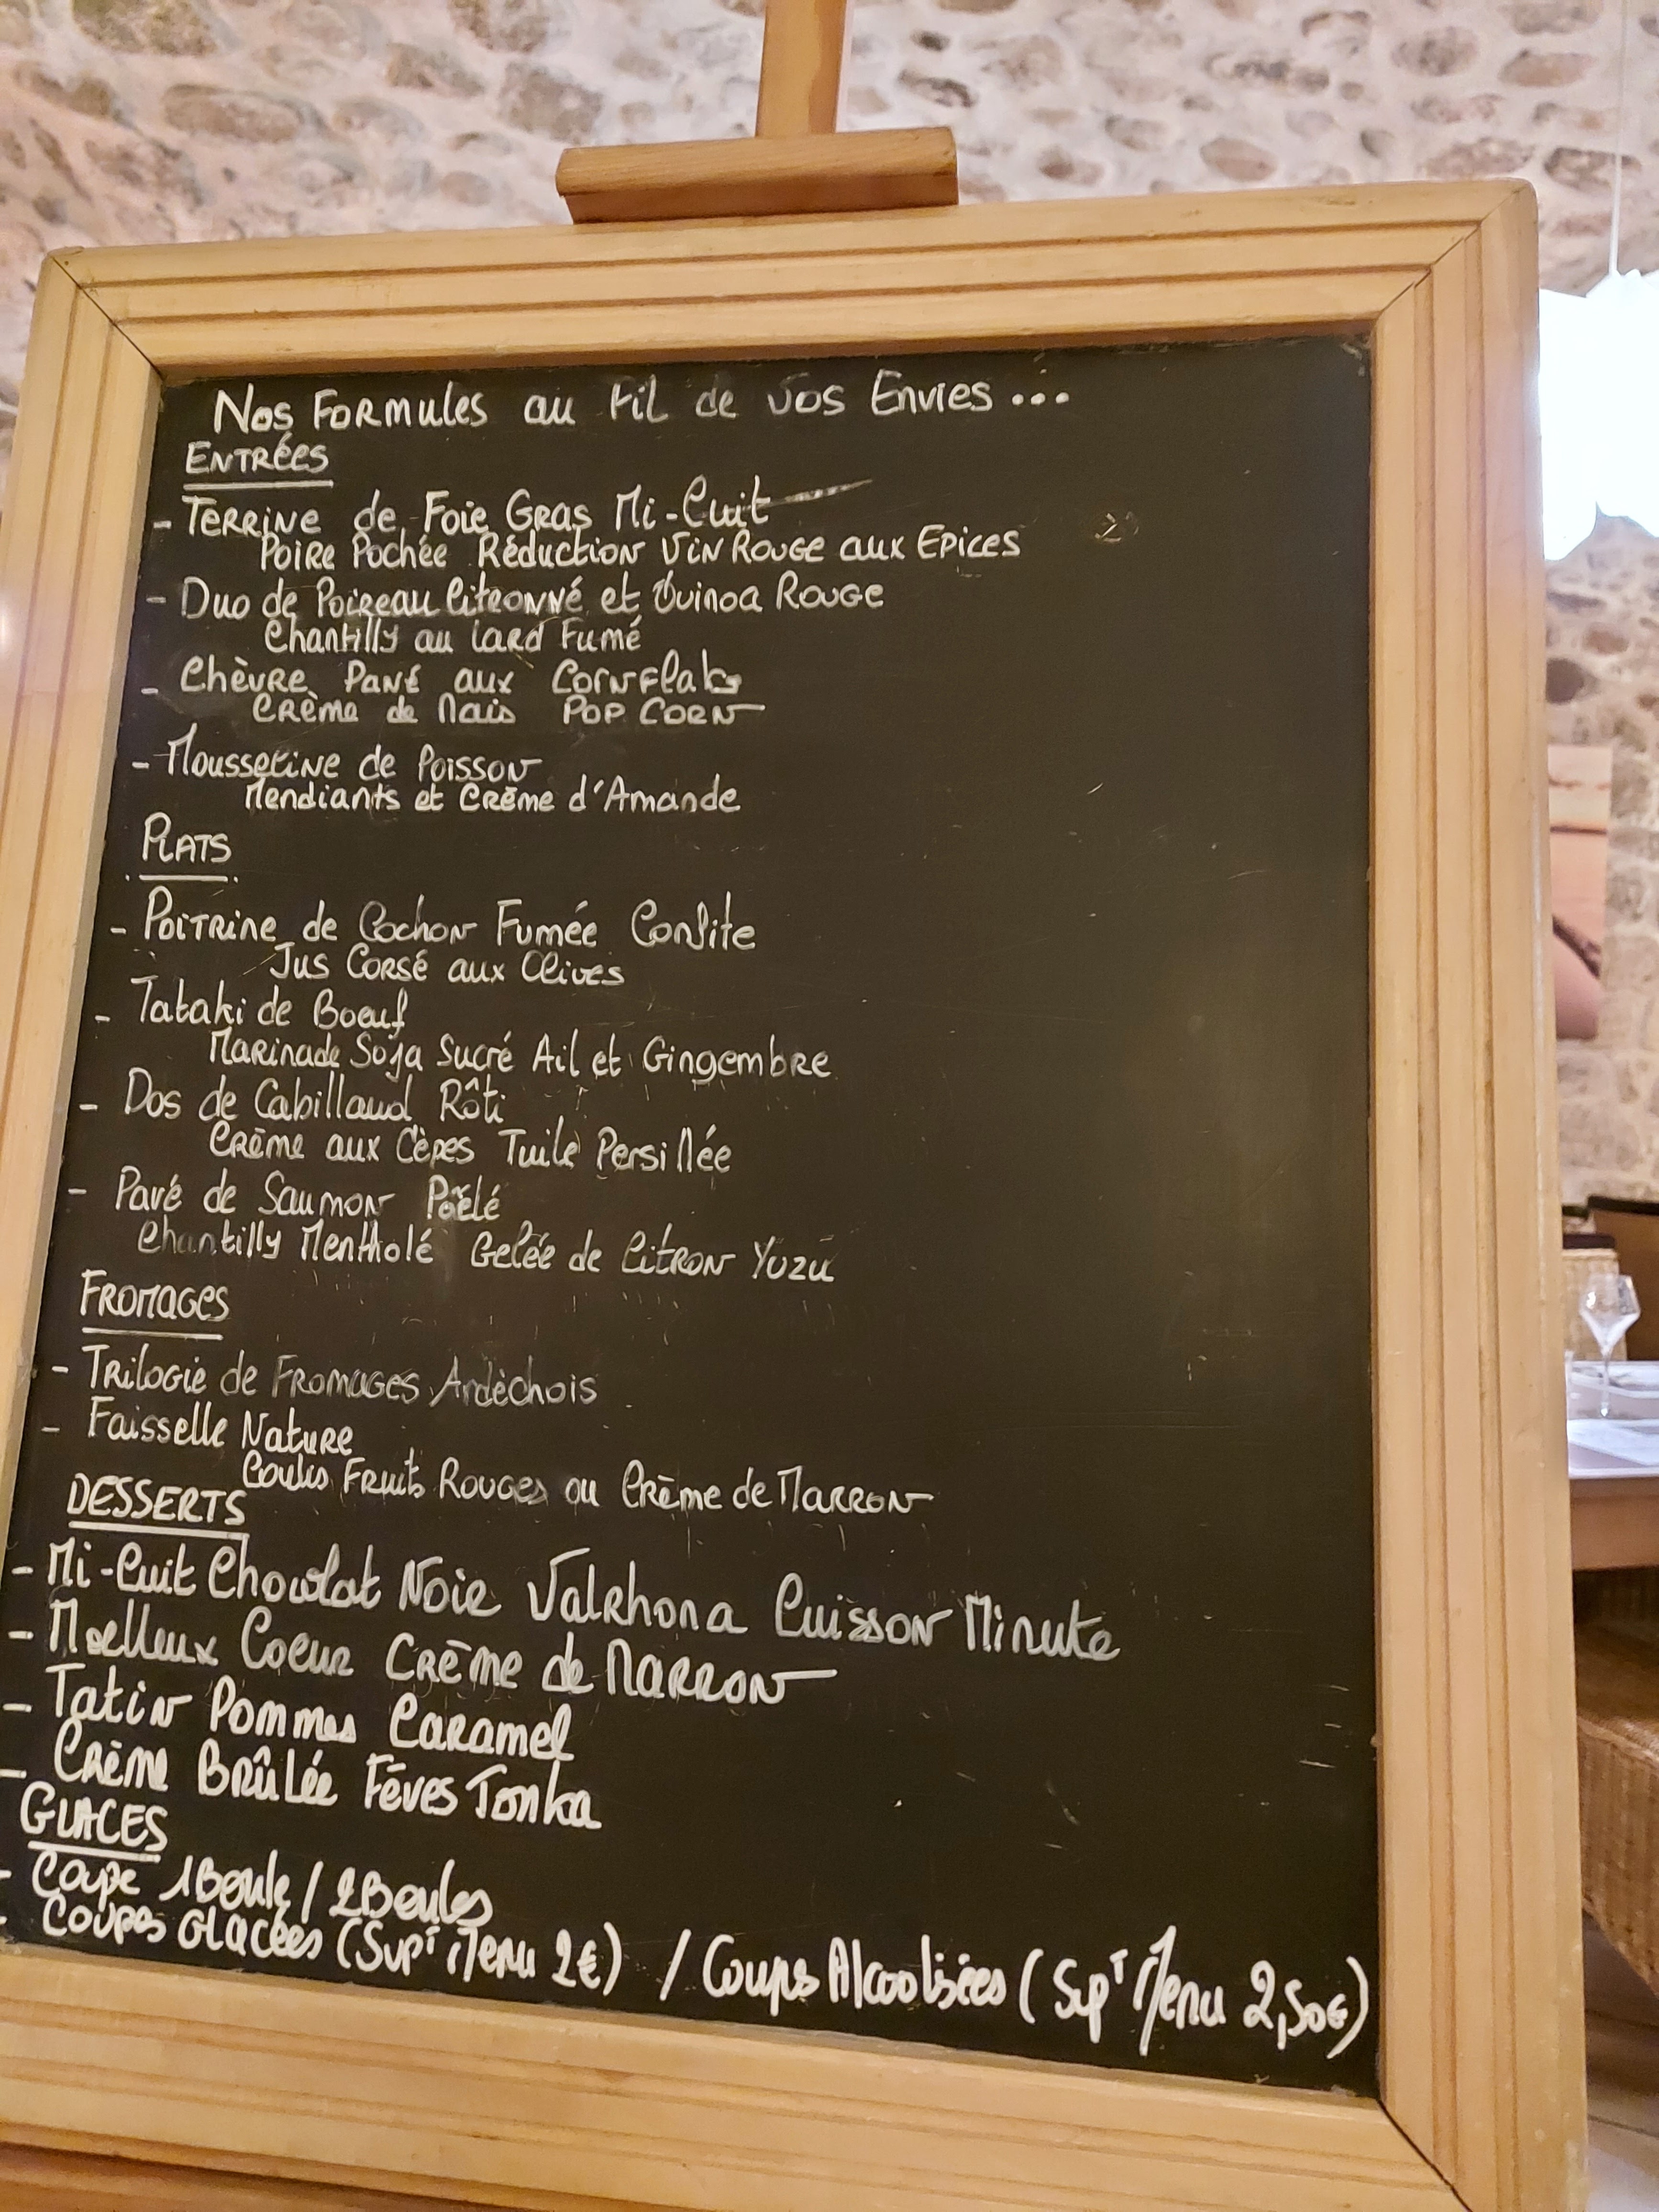 Nos Formules au Fil de vos Envies...
ENTRÉES
- Terrine de Foie Gras Mi-Cuit
Poire Pochée Réduction Vin Rouge aux Epices
- Duo de Poireau Citronné et Quinoa Rouge
Chantilly au Lard Fumé
- Chèvre Pané aux Cornflaks
Crème de Mais Pop Corn
- Mousseline de Poisson
Mendiants et Crème d'Amande
PLATS
- Poitrine de Cochon Fumée Confite
Jus Corsé aux Olives
- Tataki de Boeuf
Marinade Soja Sucré Ail et Gingembre
- Dos de Cabillaud Rôti
Crème aux Cèpes Tuile Persillée
- Pavé de Saumon Poêlé
Chantilly Mentholé Gelée de Citron Yuzu
FROMAGES
- Trilogie de Fromages Ardèchois
- Faisselle Nature
Coulis Fruits Rouges ou Crème de Marron
DESSERTS
- Mi-Cuit Chocolat Noir Valrhona Cuisson Minute
- Moelleux Coeur Crème de Marron
- Tatin Pommes Caramel
- Crème Brûlée Fèves Tonka
GLACES
- Coupe 1 Boule / 2 Boules
- Coupes Glacées (Supᵀ Menu 2€) / Coups Alcoolisées (Supᵀ Menu 2,50€)